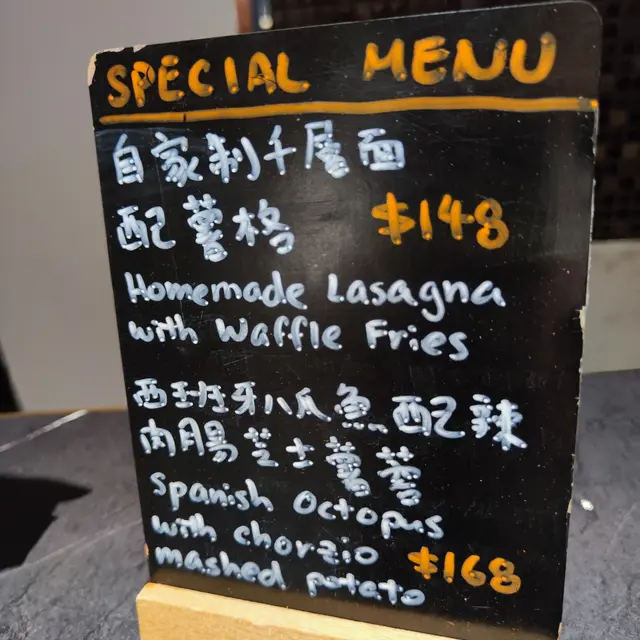 SPECIAL MENU
自家制千層面
配薯格 $148
Homemade Lasagna
with Waffle Fries
西班牙八爪魚配辣
肉腸芝士薯蓉
Spanish Octopus
with chorzio
mashed potato $168